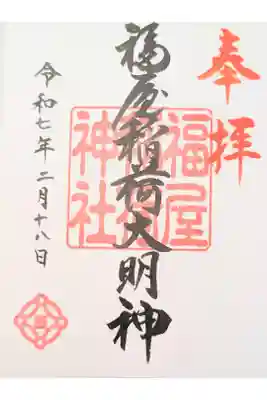 奉拝
福屋稲荷大明神
福屋
神社
令和七年二月十八日